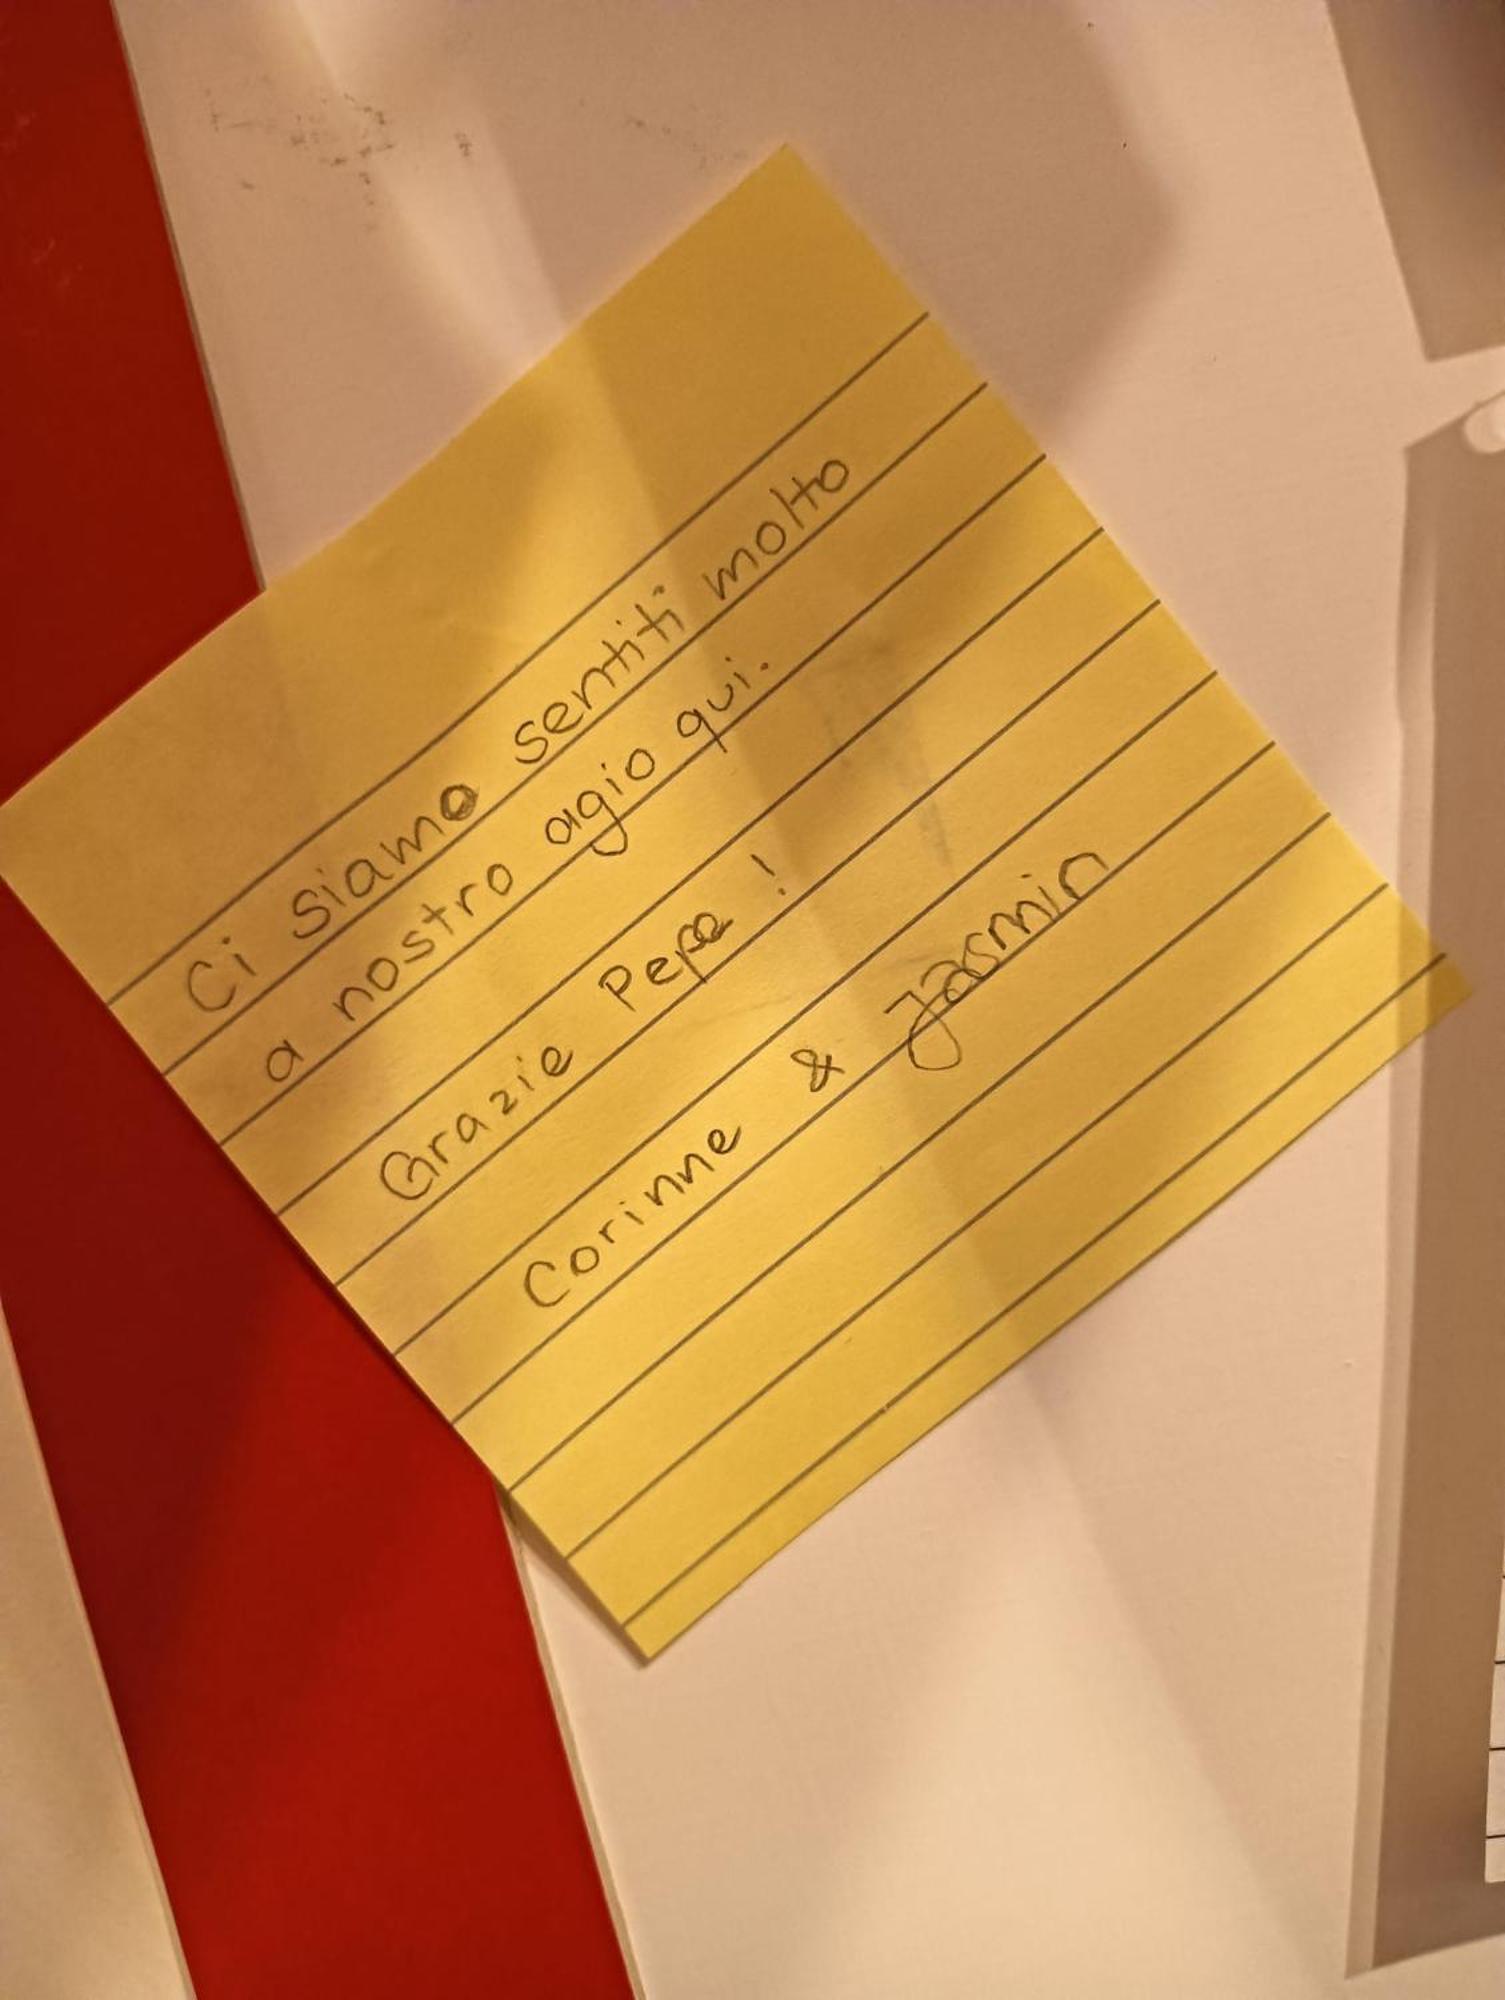 Ci siamo sentiti molto
a nostro agio qui.
Grazie Pepe !
Corinne & Jasmin